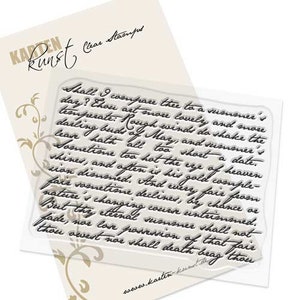 KARTEN
Kunst Clear Stamps
Shall I compare thee to a summer's
day? Thou art more lovely and more
temperate. Rough winds do shake the
darling buds of May and summer's
lease hath all too short a date.
Sometime too hot the eye of heaven
shines and often is his gold complex-
ion dimmed; and every fair from
fair sometime declines, by chance or
nature's changing course untrimmed
But thy eternal summer shall not
fade nor lose possession of that fair
thou owest nor shall death brag thou
www.karten-kunst.de